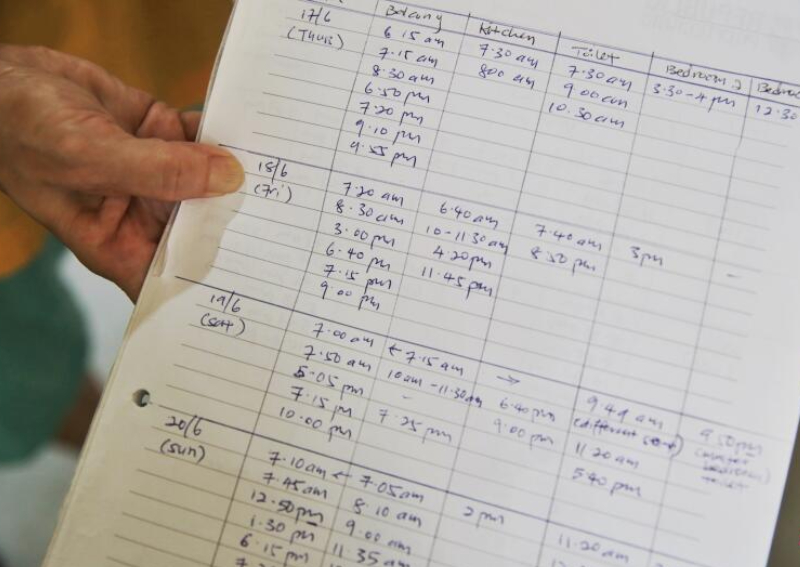 17/6 Balcony Kitchen Toilet Bedroom 2
(Thurs) 6.15 am 7.30 am 7.30 am 3.30-4 pm 12.30
7.15 am 8.00 am 9.00 am
8.30 am 10.30 am
6.50 pm
7.20 pm
9.10 pm
9.55 pm
18/6 7.20 am 6.40 am 7.40 am 3pm -
(Fri) 8.30 am 10-11.30am 8.50 pm
3.00 pm 4.20 pm
6.40 pm 11.45 pm
7.15 pm
9.00 pm
19/6 7.00 am ← 7.15 am → 9.49 am 9.50pm
(Sat) 7.50 am 10am-11.30am 6.40pm (different
5.05 pm - 9.00 pm 11.20 am
7.15 pm 7.25 pm 5.40 pm
10.00 pm
20/6 7.10am ← 7.05am 2 pm 11.20 am
(Sun) 7.45am 8.10 am
12.50pm 9.00 am
1.30 pm 11.35 am
6.15 pm